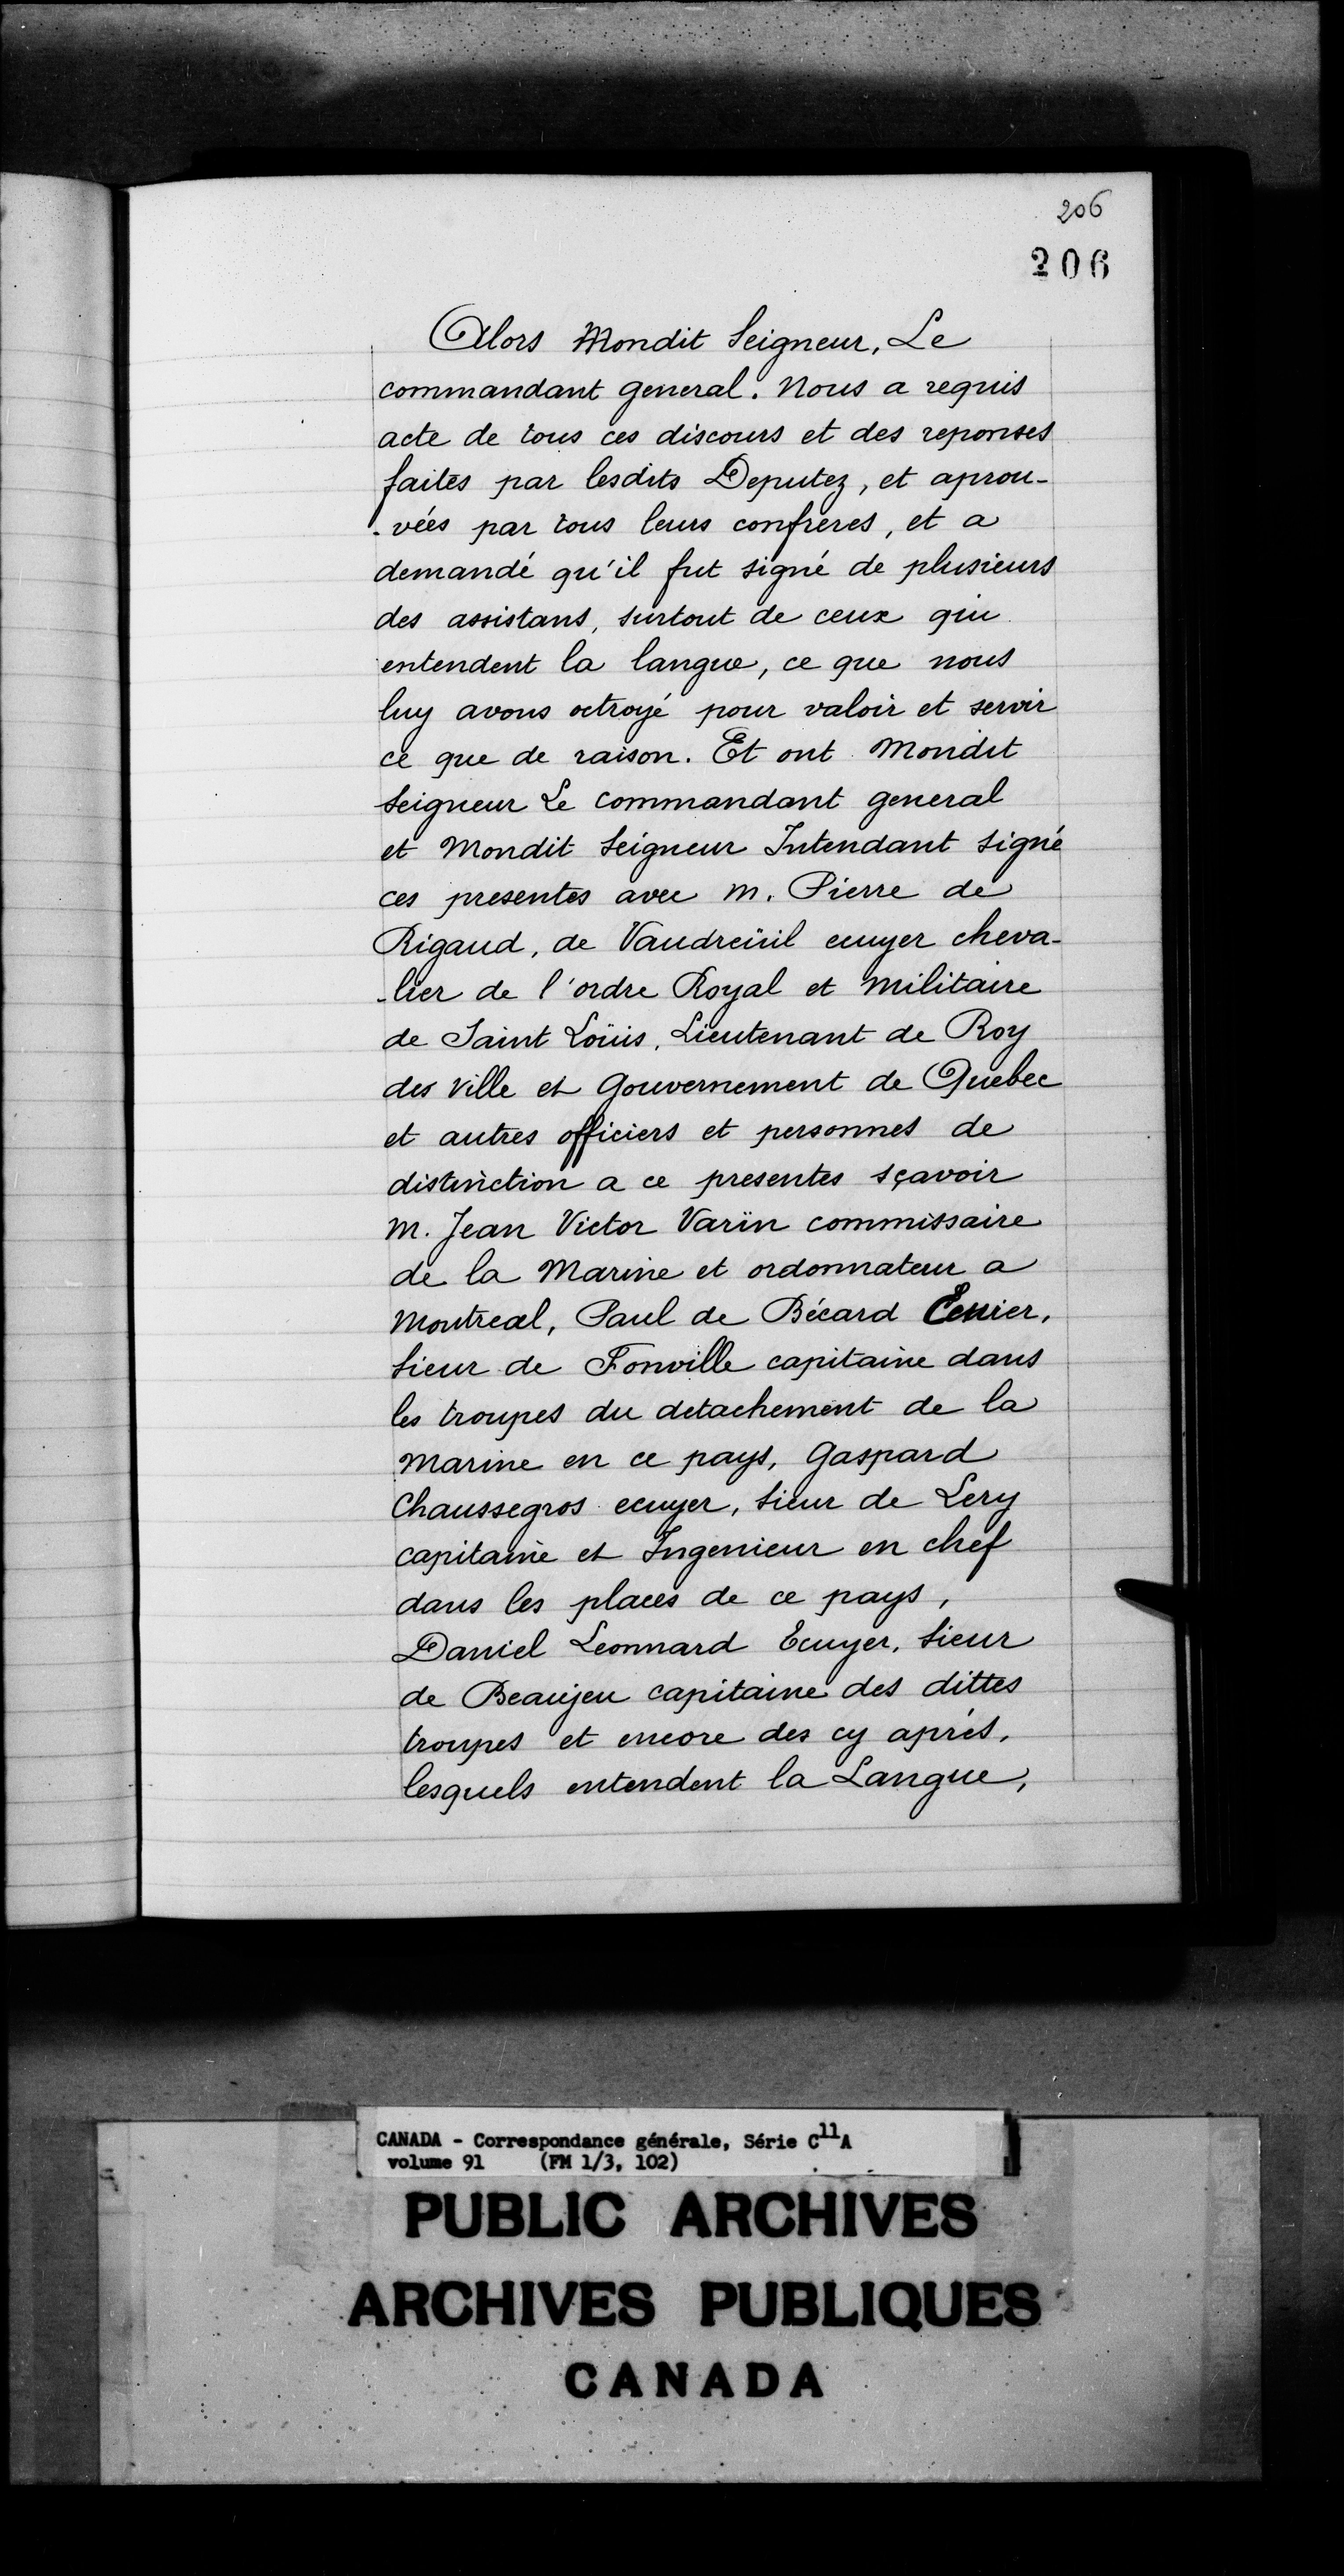 206
206
Alors Mondit Seigneur, Le
commandant general. Nous a requis
acte de tous ces discours et des reponses
faites par lesdits Deputez, et aprou-
-vées par tous leurs confreres, et a
demandé qu'il fut signé de plusieurs
des assistans, surtout de ceux qui
entendent la langue, ce que nous
luy avons octroyé pour valoir et servir
ce que de raison. Et ont Mondit
Seigneur Le commandant general
et Mondit Seigneur Intendant signé
ces presentes avec M. Pierre de
Rigaud, de Vaudreüil ecuyer cheva-
-lier de l'ordre Royal et militaire
de Saint Loüis, Lieutenant de Roy
des ville et Gouvernement de Quebec
et autres officiers et personnes de
distinction a ce presentes sçavoir
M. Jean Victor Varin commissaire
de la Marine et ordonnateur a
Montreal, Paul de Bécard
Sieur de Fonville capitaine dans
les troupes du detachement de la
Marine en ce pays, Gaspard
Chaussegros ecuyer, Sieur de Lery
capitaine et Ingenieur en chef
dans les places de ce pays,
Daniel Leonnard Ecuyer, Sieur
de Beaujeu capitaine des dittes
troupes et encore des cy aprés,
lesquels entendent la Langue,
CANADA - Correspondance générale, Série C11A
volume 91 (FM 1/3, 102)
PUBLIC ARCHIVES
ARCHIVES PUBLIQUES
CANADA